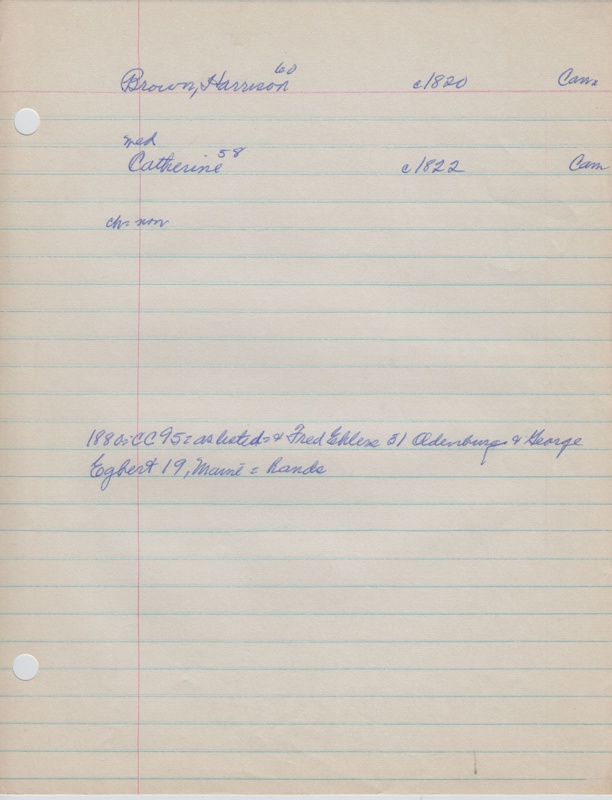 Brown, Harrison 60 c1820 Can.
med
Catherine 58 c1822 Can
ch = non
1880: CC 95 = as listed = & Fred Ehlers 51 Oldenburg & George
Egbert 19, Maine = hands